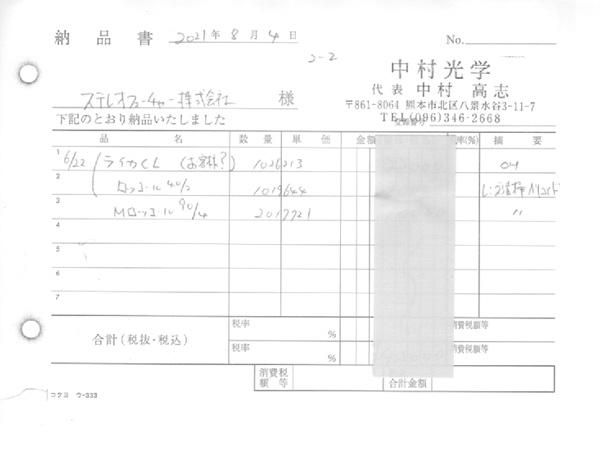 納品書 2021年8月4日 No.
2-2
中村光学
代表 中村 高志
ステレオフューチャー株式会社 様
〒861-8064 熊本市北区八景水谷3-11-7
TEL(096)346-2668
下記のとおり納品いたしました
登録番号
品名 数量 単価 金額 率(%) 摘要
1 6/22 ライカCL (お客様?) 1026213 OH
2 ロッコール 40/2 1019644
3 Mロッコール 90/4 2017721 〃
4
5
6
7
合計(税抜・税込) 税率 % 消費税額等
税率 % 消費税額等
消費税額等 合計金額
コクヨ ウ-333